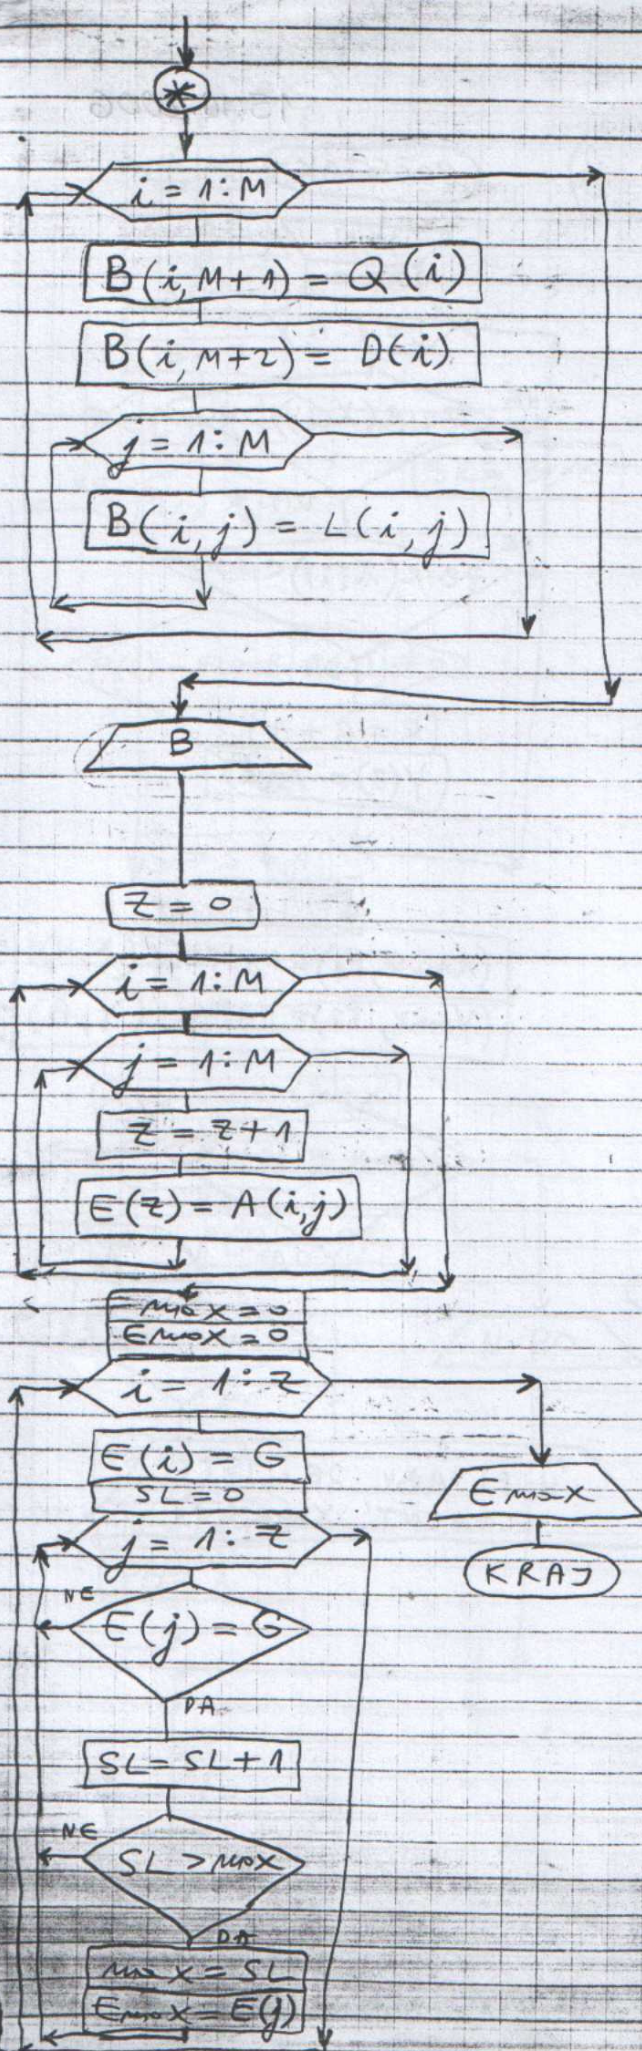 *
i = 1:M
B(i, M+1) = Q(i)
B(i, M+2) = D(i)
j = 1:M
B(i, j) = L(i, j)
B
Z = 0
i = 1:M
j = 1:M
Z = Z+1
E(Z) = A(i,j)
Emax=0
i = 1:Z
E(i) = G
SL=0
Emax
j = 1:Z
KRAJ
NE
E(j) = G
DA
SL=SL+1
NE
SL>max
DA
max=SL
Emax=E(j)